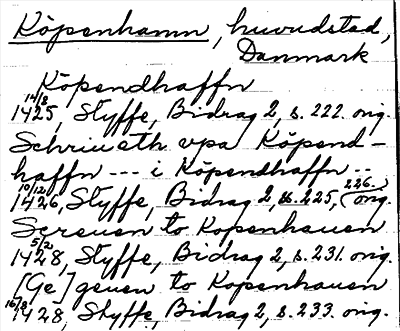 Köpenhamn, huvudstad,
Danmark
Köpendhaffn
14/8 1425, Styffe, Bidrag 2, s. 222. orig.
Schriueth vpa Köpend-
haffn --- i Köpendhaffn --
10/12 1426, Styffe, Bidrag 2, s. 225, 226. orig.
Screuen to Kopenhauen
5/2 1428, Styffe, Bidrag 2, s. 231. orig.
[Ge]geuen to Kopenhauen
16/8 1428, Styffe, Bidrag 2, s. 233. orig.